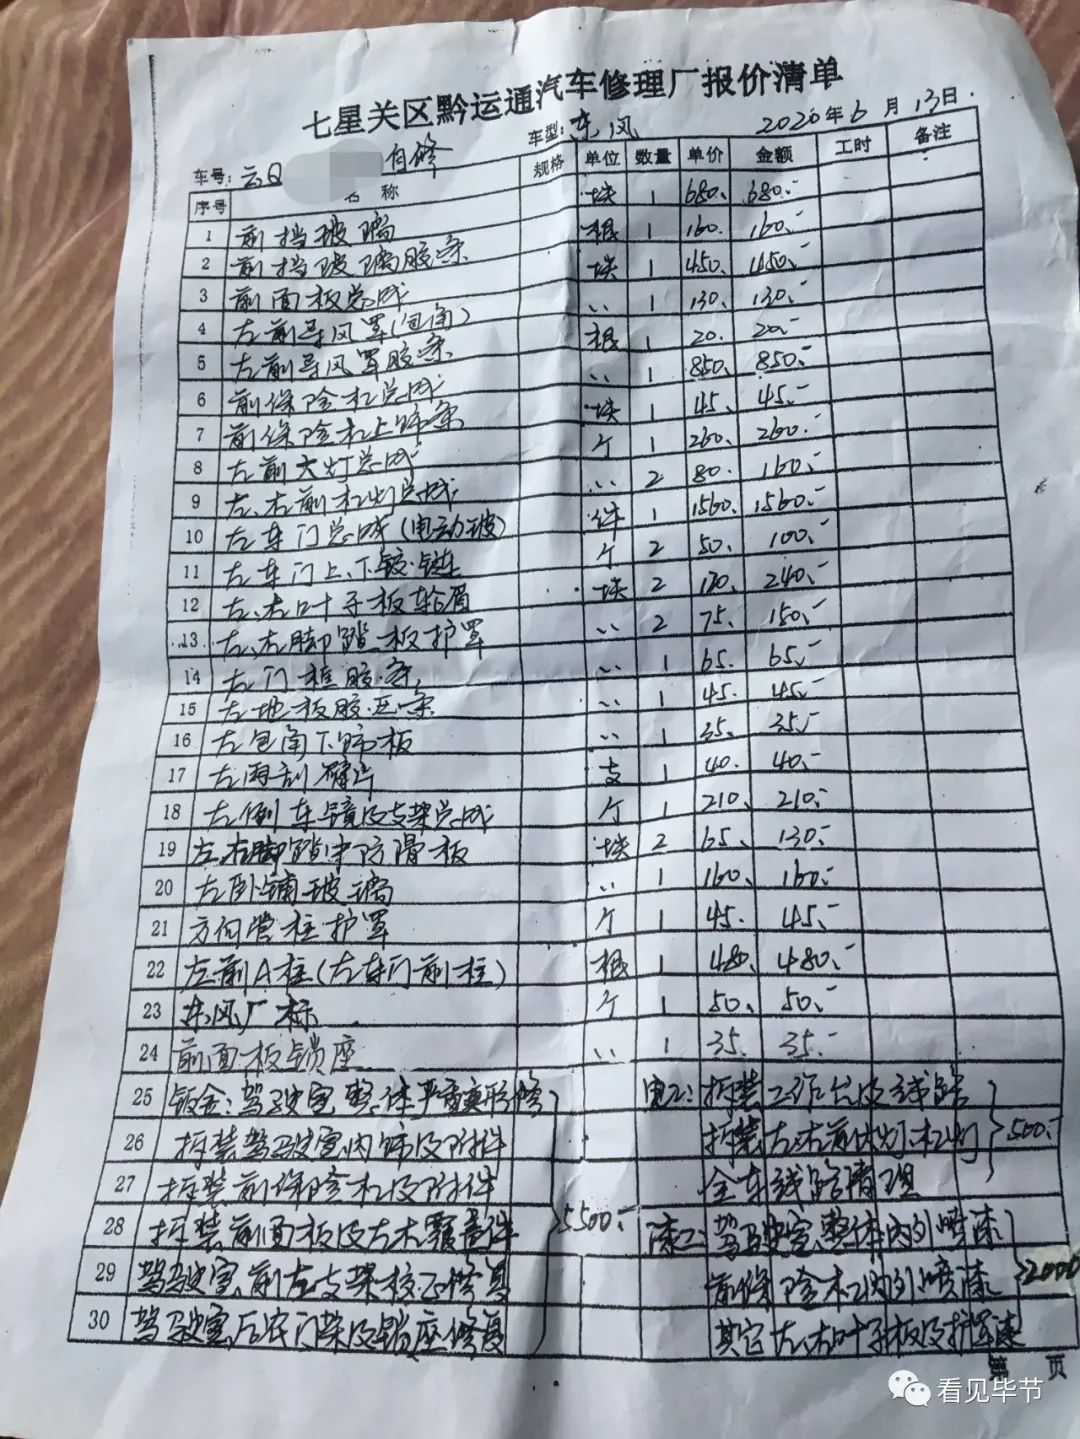 七星关区黔运通汽车修理厂报价清单
车号: 云Q 自修 车型: 东风 2020年6月13日
序号 名称 规格 单位 数量 单价 金额 工时 备注
1 前挡玻璃 块 1 680. 680.-
2 前挡玻璃胶条 根 1 160. 160.-
3 前面板总成 块 1 450. 450.-
4 左前导风罩(包角) 〃 1 130. 130.-
5 左前导风罩胶条 根 1 20. 20.-
6 前保险杠总成 〃 1 850. 850.-
7 前保险杠上饰条 块 1 45. 45.-
8 左前大灯总成 个 1 260. 260.-
9 左、右前杠灯总成 〃 2 80. 160.-
10 左车门总成(电动玻) 件 1 1560. 1560.-
11 左车门上、下铰链 个 2 50. 100.-
12 左、右叶子板轮眉 块 2 120. 240.-
13 左、右脚踏板护罩 〃 2 75. 150.-
14 左门框胶条 〃 1 65. 65.-
15 左地板胶压条 〃 1 45. 45.-
16 左包角下饰板 〃 1 35. 35.-
17 左雨刮臂片 支 1 40. 40.-
18 左倒车镜及支架总成 个 1 210. 210.-
19 左、右脚踏中防滑板 块 2 65. 130.-
20 左卧铺玻璃 〃 1 160. 160.-
21 方向管柱护罩 个 1 45. 45.-
22 左前A柱(左车门前柱) 根 1 480. 480.-
23 东风厂标 个 1 50. 50.-
24 前面板锁座 〃 1 35. 35.-
25 钣金:驾驶室整体严重变形修 电工:拆装工作台及线路
26 拆装驾驶室内饰及附件 拆装左右前大灯、杠灯 500.-
27 拆装前保险杠及附件 全车线路清理
28 拆装前面板及左右覆盖件 5500.- 漆工:驾驶室整体内外喷漆
29 驾驶室前左支架校正修复 前保险杠内外喷漆 2000
30 驾驶室后依门架及锁座修复 其它左、右叶子板及护罩漆
第 页
看见毕节